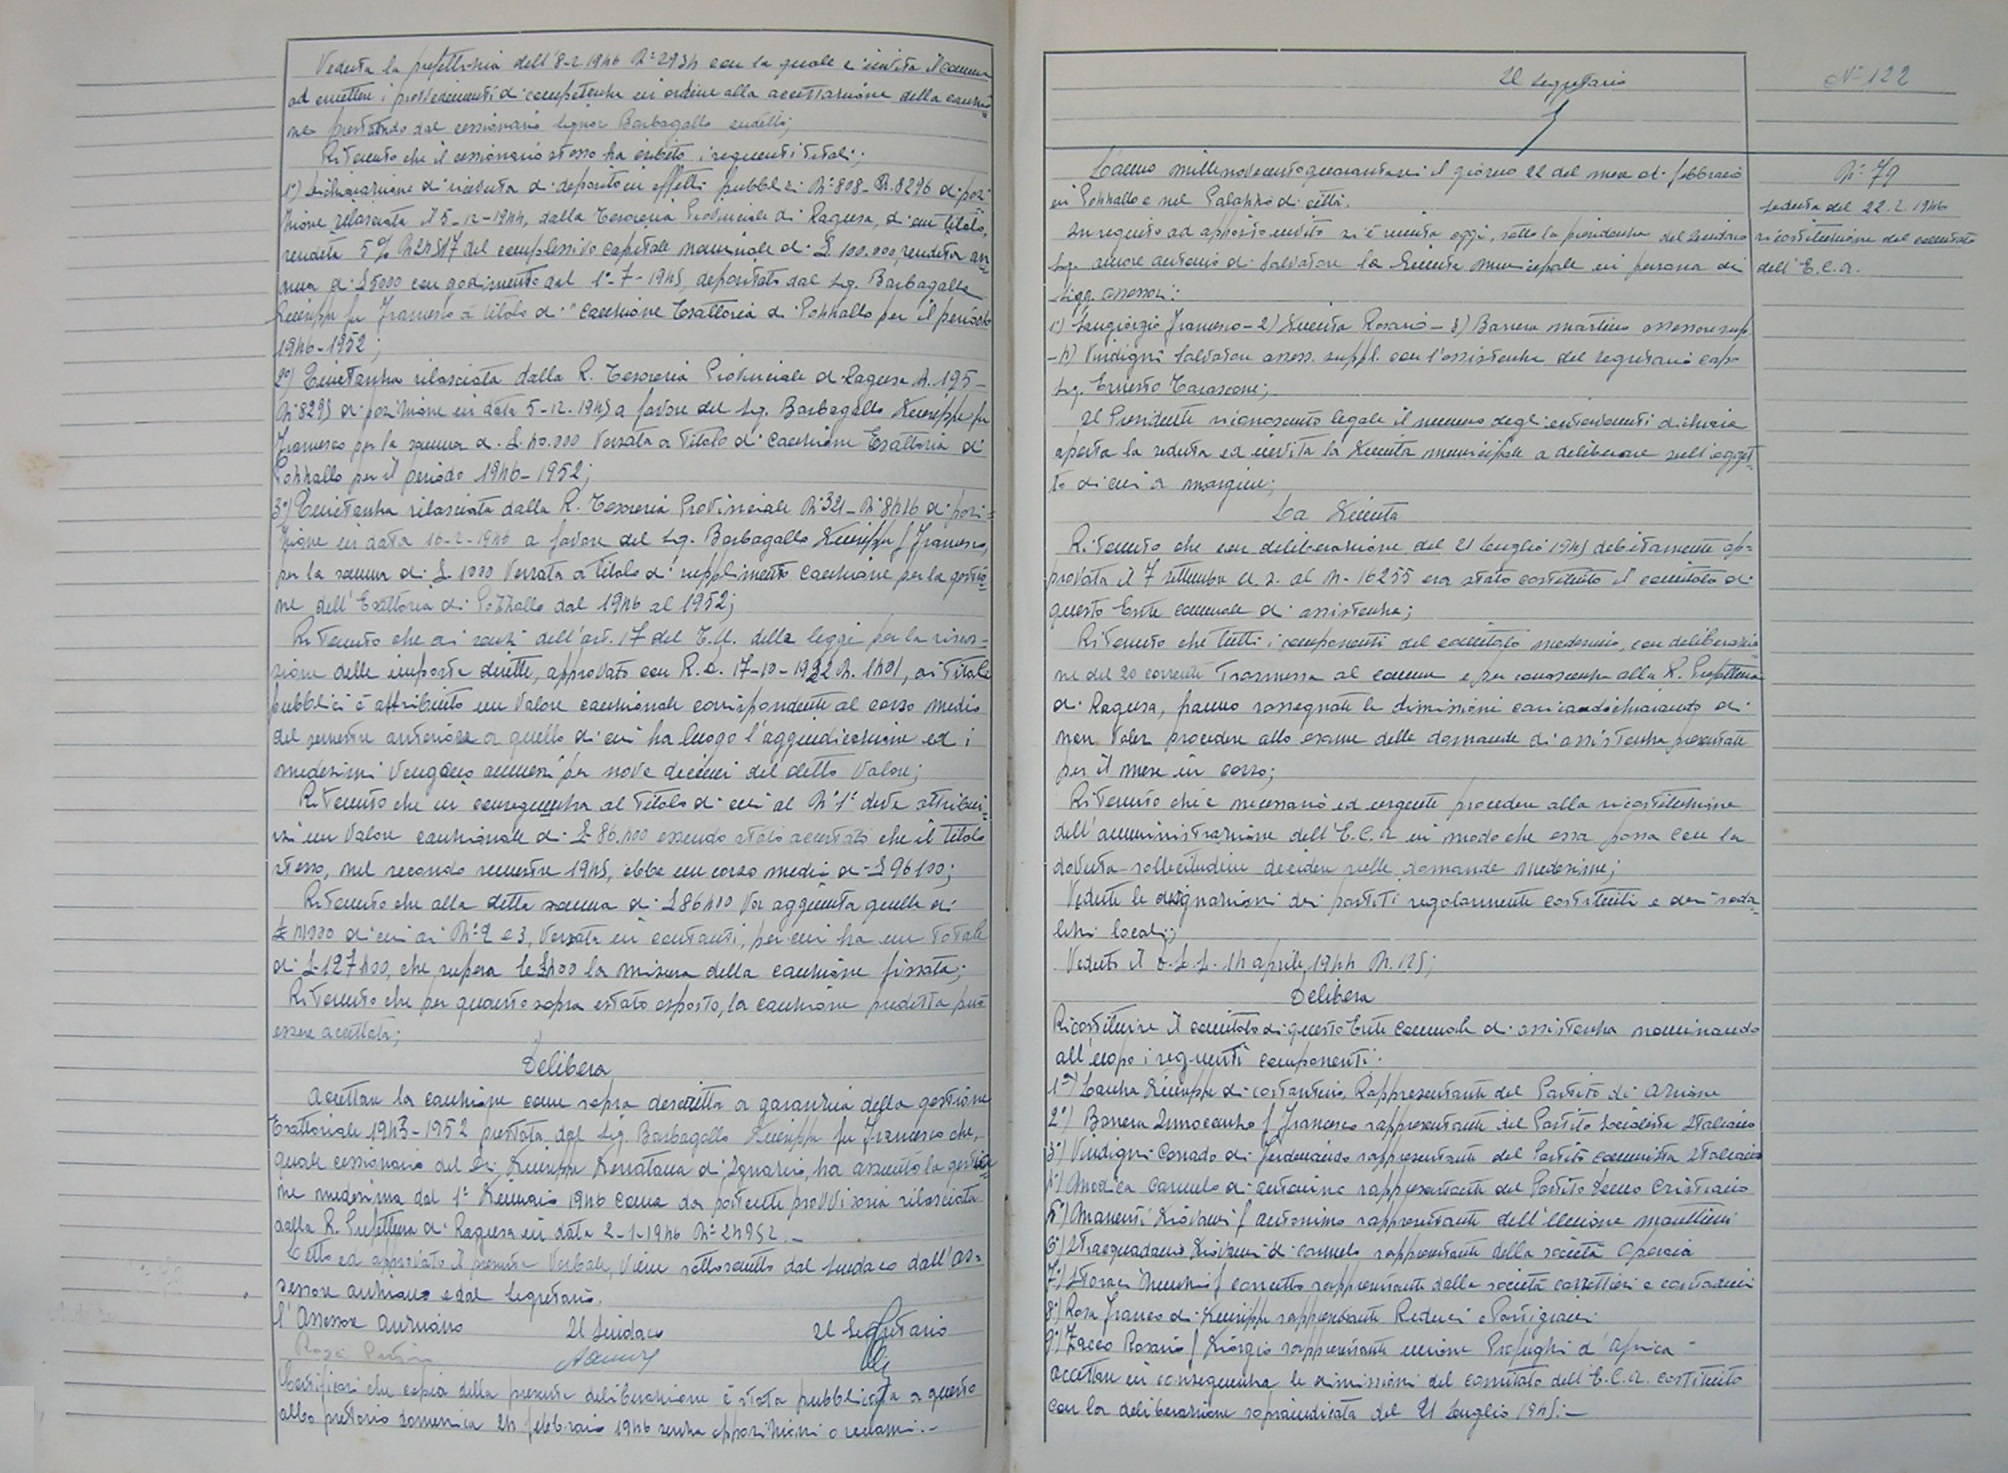 Veduta la prefettizia dell'8-2-1946 N: 2934 con la quale e invita il comune
ad emettere i provvedimenti di competenza in ordine alla accettazione della cauzio
ne prestando dal cessionario signor Barbagallo sudetto;
Ritenuto che il cessionario stesso ha esibito i seguenti titoli:
1°) Dichiarazione di ricevuta di deposito in effetti pubblici N: 808 - N. 8296 di posi
zione rilasciata il 5-12-1944, dalla Tesoreria Provinciale di Ragusa, di un titolo,
rendita 5% N 24517 del complessivo capitale nominale di £ 100.000, rendita an=
nua di £ 5000 con godimento dal 1°-7-1945, depositato dal Sig. Barbagallo
Giuseppe fu Francesco a titolo di "cauzione Esattoria di Pozzallo per il periodo
1946-1952;
2°) Quietanza rilasciata dalla R. Tesoreria Provinciale di Ragusa N. 195-
N: 8295 di posizione in data 5-12-1945 a favore del Sig. Barbagallo Giuseppe fu
Francesco per la somma di £. 40.000 versata a titolo di cauzione Esattoria di
Pozzallo per il periodo 1946-1952;
3°) Quietanza rilasciata dalla R. Tesoreria Provinciale N: 321 - N: 8416 di posi=
zione in data 16-2-1946 a favore del Sig. Barbagallo Giuseppe f Francesco,
per la somma di £ 1000 versata a titolo di supplimento cauzione per la gestio=
ne dell'Esattoria di Pozzallo dal 1946 al 1952;
Ritenuto che ai sensi dell'art. 17 del T.U. della leggi per la riscos=
sione delle imposte dirette, approvato con R.D. 17-10-1922 N. 1401, ai titoli
pubblici è attribuito un valore cauzionale corrispondente al corso medio
del semestre anteriore a quello di cui ha luogo l'aggiudicazione ed i
medesimi vengono ammessi per nove decimi del detto valore;
Ritenuto che in conseguenza al titolo di cui al N° 1° deve attribuir
si un valore cauzionale di £ 86.400 essendo stato accertato che il titolo
stesso, nel secondo semestre 1945, ebbe un corso medio di £ 96100;
Ritenuto che alla detta somma di £ 86400 va aggiunta quella di
£ 41000 di cui ai N: 2 e 3, versata in contanti, per cui ha un totale
di £. 127400, che supera le £ 400 la misura della cauzione fissata;
Ritenuto che per quanto sopra è stato esposto, la cauzione predetta può
essere accettata;
Delibera
Accettare la cauzione come sopra descritta a garanzia della gestione
Esattoriale 1943-1952 prestata dal Sig. Barbagallo Giuseppe fu Francesco che,
quale cessionario del Sig. Giuseppe Serratana di Ignazio, ha assunto la gestio
ne medesima dal 1° Gennaio 1946 come da patente provvisoria rilasciata
dalla R. Prefettura di Ragusa in data 2-1-1946 N: 24952.-
Letto ed approvato il presente verbale, viene sottoscritto dal Sindaco dall'as=
sessore anziano e dal Segretario.
L'Assessore anziano Il Sindaco Il Segretario
Certificasi che copia della presente deliberazione è stata pubblicata a questo
albo pretorio domenica 24 febbraio 1946 senza opposizioni o reclami.-
Il Segretario
N: 122
L'anno millenovecentoquarantasei il giorno 22 del mese di febbraio
in Pozzallo e nel Palazzo di città.
In seguito ad apposito invito si è riunita oggi, sotto la presidenza del Sindaco
Sig. Amore Antonio di Salvatore la Giunta Municipale in persona di
Sigg. assessori:
1°) Sangiorgio Francesco - 2) Giunta Rosario - 3) Barrera Martino assessore sup
- 4) Vindigni Salvatore assess. suppl. con l'assistenza del segretario capo
Sig. Ernesto Tarascone;
Il Presidente riconosciuto legale il numero degli intervenuti dichiara
aperta la seduta ed invita la Giunta municipale a deliberare sull'ogget=
to di cui a margine;
N: 79
Seduta del 22.2.1946
ricostituzione del comitato
dell'E.C.A.
La Giunta
Ritenuto che con deliberazione del 21 Luglio 1945 debitamente ap=
provata il 7 settembre u.s. al N. 16255 era stato costituito il comitato di
questo Ente comunale di assistenza;
Ritenuto che tutti i componenti del comitato medesimo, con deliberazio
ne del 20 corrente trasmessa al comune e per conoscenza alla R. Prefettura
di Ragusa, hanno rassegnate le dimissioni carica dichiarando di
non voler procedere allo esame delle domande di assistenza presentate
per il mese in corso;
Ritenuto che è necessario ed urgente procedere alla ricostituzione
dell'amministrazione dell'E.C.A in modo che essa possa con la
dovuta sollecitudine decidere sulle domande medesime;
Vedute le designazioni dei partiti regolarmente costituiti e dei soda=
lizi locali;
Veduto il D.L.L. 14 aprile 1944 N. 125;
Delibera
Ricostituire il comitato di questo Ente Comunale di assistenza nominando
all'uopo i seguenti componenti:
1°) Lauza Giuseppe di Costantino Rappresentante del Partito di Azione
2°) Barrera Innocenzo f Francesco rappresentante del Partito Socialista Italiano
3°) Vindigni Corrado di Ferdinando rappresentante del Partito Comunista Italiano
4°) Modica Carmelo di Antonino rappresentante del Partito Demo Cristiano
5°) Manenti Giovanni f Antonino rappresentante dell'Unione Marittimi
6°) Stracquadanio Giovanni di Carmelo rappresentante della società Operaia
7°) Storaci f Concetto rappresentante della società carrettieri e contadini
8°) Rosa Franco di Giuseppe rappresentante Reduci e Partigiani
9°) Zacco Rosario f Giorgio rappresentante unione Profughi d'Africa -
Accettare in conseguenza le dimissioni del comitato dell'E.C.A. costituito
con la deliberazione sopraindicata del 21 Luglio 1945:-